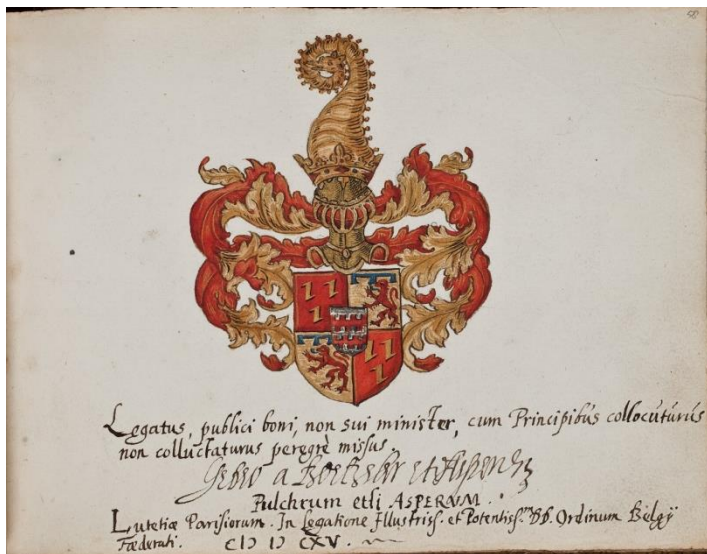 58
Legatus, publici boni, non sui minister, cum Principibus collocuturus
non colluctaturus peregrè missus.
a et
Pulchrum etsi ASPERUM.
Lutetiæ Parisiorum. In Legatione Illustriss. et Potentiss. DD. Ordinum Belgÿ
Fœderati. cIɔ Iɔ CXV.